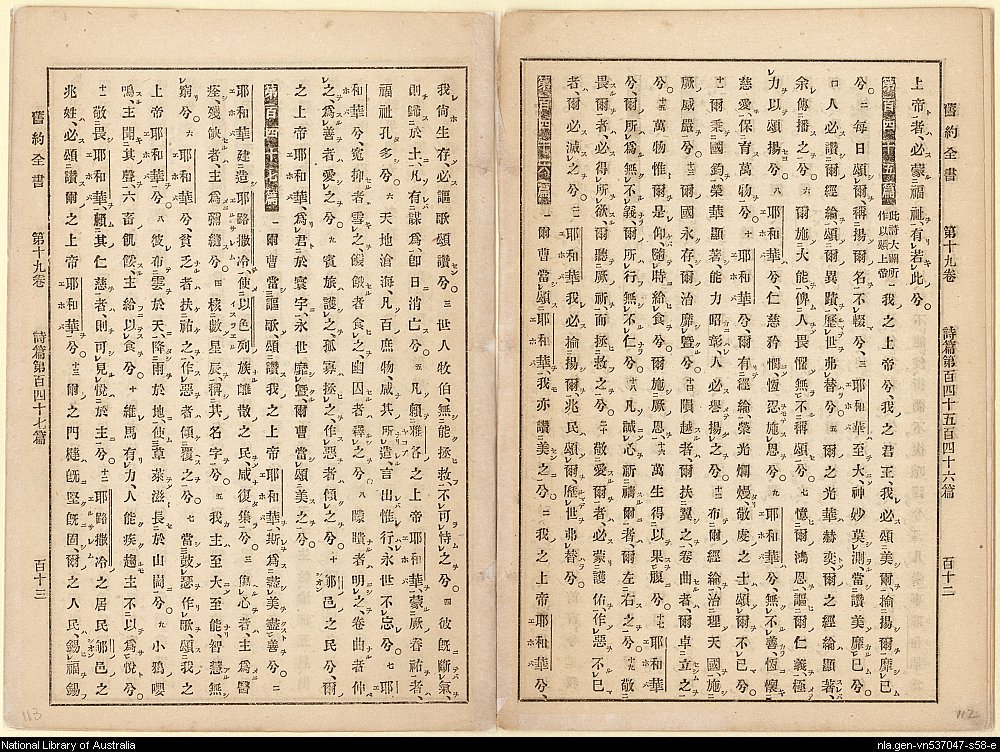 舊約全書　第十九卷　詩篇第百四十五百四十六篇　百十二
上帝者、必蒙福祉、有若此兮。
第百四十五篇　此詩大闢所作以頌上帝　一我之上帝兮、我之君王、我必頌美爾、揄揚爾靡已
兮。二每日頌爾、稱揚爾名不輟兮。三耶和華至大、神妙莫測、當讚美靡已兮。
四人必讚爾經綸、頌爾異蹟、歷世弗替兮。五爾之光華赫奕、爾之經綸顯著、
余傳播之兮。六爾施大能、俾人畏懼、無不稱頌兮。七憶爾鴻恩、謳爾仁義、極
力以頌揚兮。八耶和華兮、仁慈矜憫、恆忍施恩兮。九耶和華兮、無不善、恆懷
慈愛、保育萬物兮。十耶和華兮、爾有經綸、榮光爛熳、敬虔之士、頌爾不已兮。
十一爾秉國鈞、榮華顯著、能力昭彰、人必譽揚之兮。十二布爾經綸、治理天國、施
厥威嚴兮。十三爾國永存、爾治靡曁兮。十四隕越者、爾扶翼之、卷曲者、爾卓立之
兮。十五萬物惟爾是仰、隨時給食兮。十六爾施厥恩、萬生得以果腹兮。十七耶和華
兮、爾所爲無不義、爾所行無不仁兮。十八凡誠心祈禱爾者、爾左右之兮。十九敬
畏爾者、必得所欲、爾聽厥祈、而拯救之兮。二十敬愛爾者、必蒙護佑、作惡不已
者、爾必滅之兮。二一耶和華兮、我必揄揚爾、兆民頌爾、歷世弗替兮。
第百四十六篇　一爾曹當頌耶和華、我亦讚美之兮。二我之上帝耶和華兮、
112
舊約全書　第十九卷　詩篇第百四十七篇　百十三
我尚生存、必謳歌頌讚兮。三世人牧伯、無能拯救、不可恃之兮。四彼旣斷氣、
則歸於土、凡有謀爲、卽日消亡兮。五凡賴雅各之上帝耶和華、蒙厥眷祐者、
福祉孔多兮。六天地滄海、凡百庶物、咸其所造、言出惟行、永世不忘兮。七耶
和華兮、寃抑者雪之、饑餓者食之、幽囚者釋之兮。八矇瞶者明之、卷曲者伸
之、爲善者愛之兮。九賓旅護之、孤寡拯之、作惡者傾之兮。十郇邑之民兮、爾
之上帝耶和華、爲君於寰宇、永世靡曁、爾曹當頌美之兮。
第百四十七篇　一爾曹當謳歌、頌讚我之上帝耶和華、斯爲盡美盡善兮。二
耶和華建造耶路撒冷、使以色列族離散之民、咸復集兮。三傷心者、主爲醫
痊、殘缺者、主爲彌縫兮。四核數星辰、稱其名字兮。五我主至大至能、智慧無
窮兮。六耶和華兮、貧乏者扶祐之、作惡者傾覆之兮。七當鼓瑟作歌、頌我之
上帝耶和華兮。八彼布雲於天、降雨於地、使草萊滋長於山岡兮。九小鴉嗷
鳴、主聞其聲、六畜飢餒、主給以食兮。十維馬有力、人能疾趨、主不以爲悅兮。
十一敬畏耶和華、賴其仁慈者、則可見悅於主兮。十二耶路撒冷之居民、郇邑之
兆姓、必頌讚爾之上帝耶和華兮。十三爾之門楗旣堅旣固、爾之人民、錫福錫
113
National Library of Australia
nla.gen-vn537047-s58-e